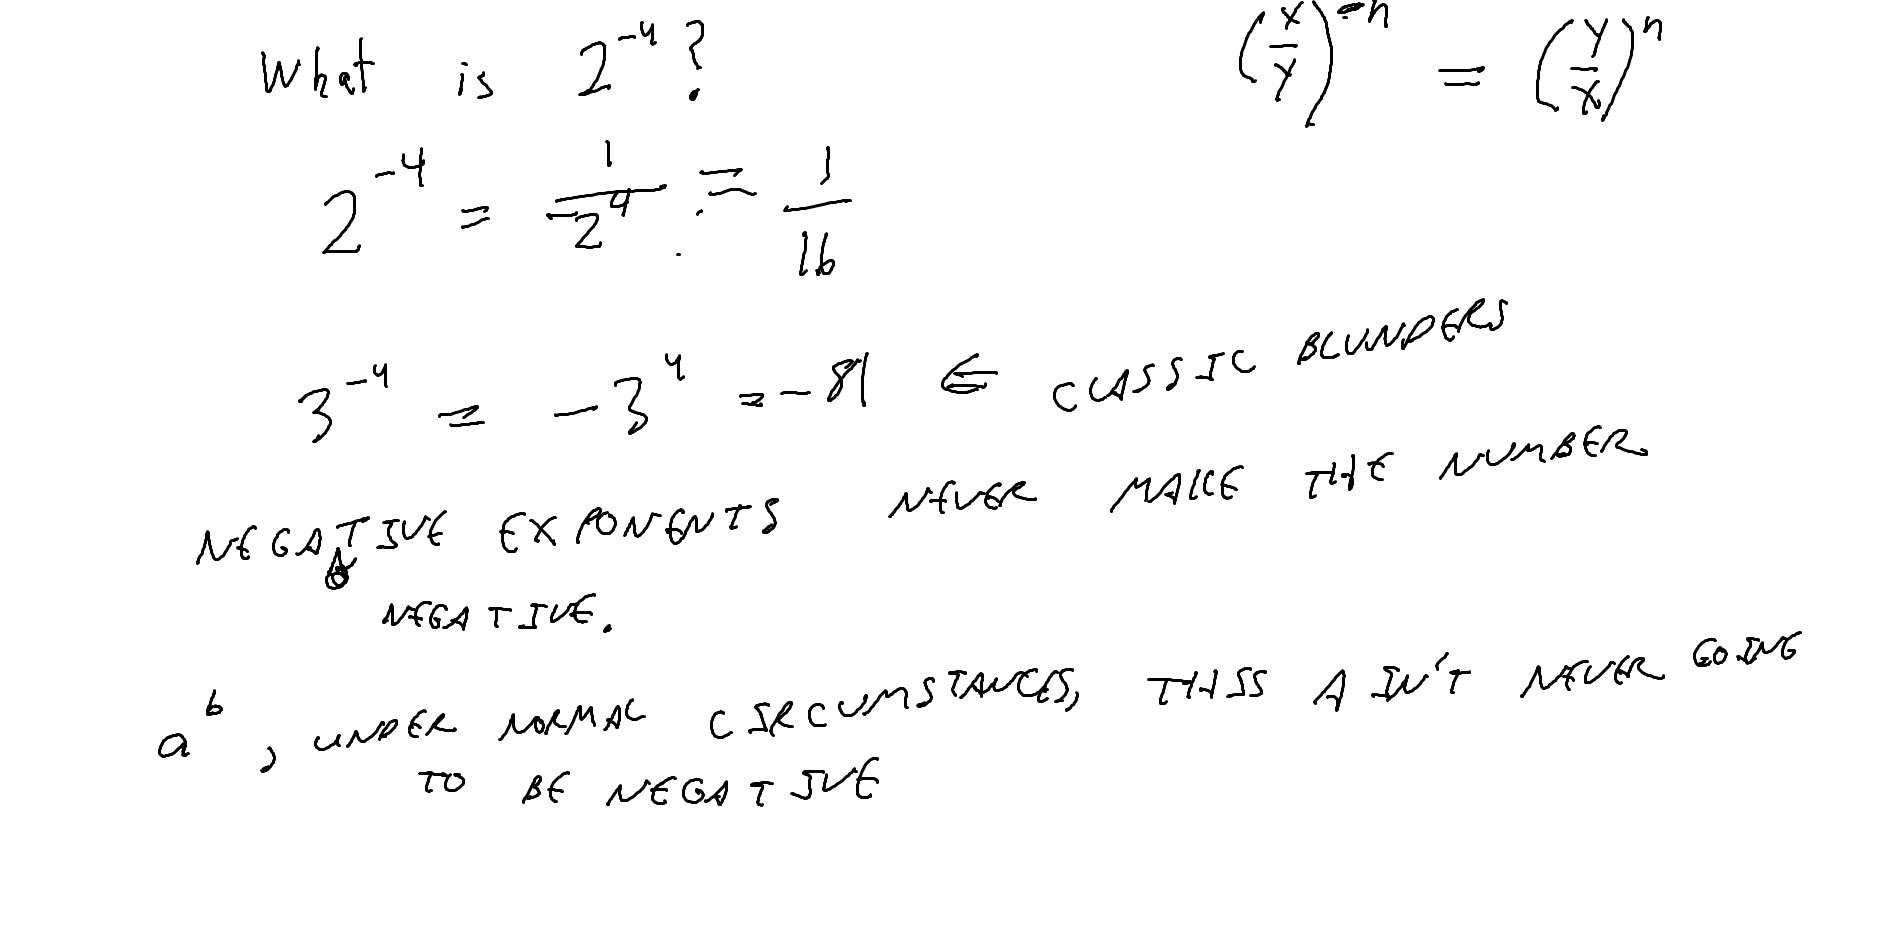 What is 2^-4?
(x/y)^-n = (y/x)^n
2^-4 = 1/-2^4 = 1/16
3^-4 = -3^4 = -81 ∈ CLASSIC BLUNDERS
NEGATIVE EXPONENTS NEVER MAKE THE NUMBER
NEGATIVE.
a^b, UNDER NORMAL CIRCUMSTANCES, THIS AIN'T NEVER GOING
TO BE NEGATIVE